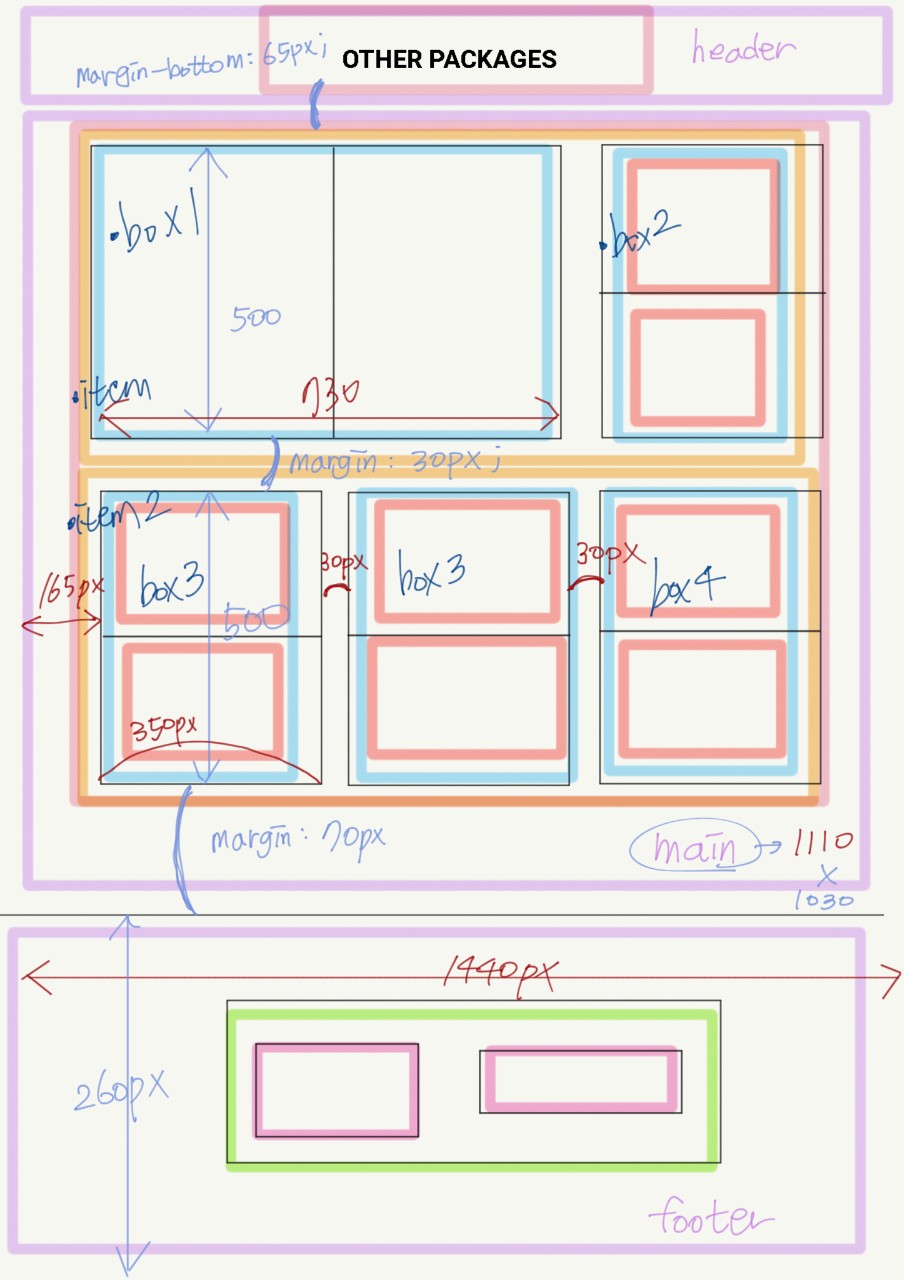 margin-bottom: 65px;
OTHER PACKAGES
header
.box1
.box2
500
.item
730
margin: 30px;
.item2
165px
box3
30px
box3
30px
box4
500
350px
margin: 70px
main → 1110
x
1030
1440px
260px
footer